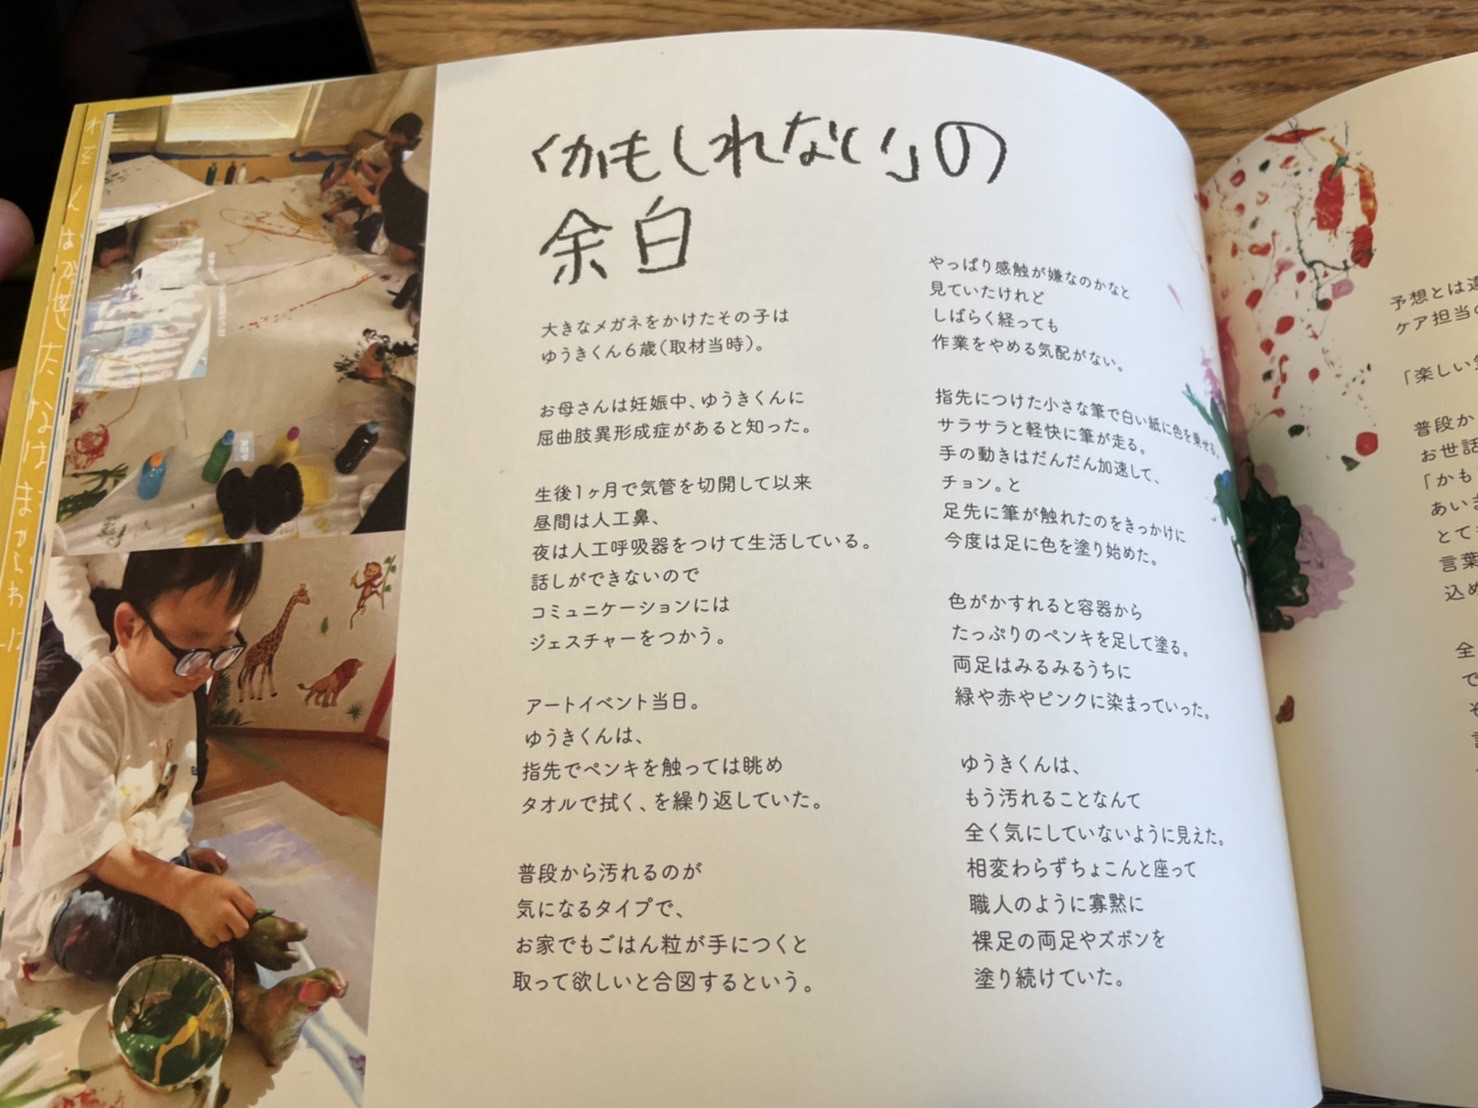 「かもしれない」の
余白
大きなメガネをかけたその子は
ゆうきくん6歳(取材当時)。
お母さんは妊娠中、ゆうきくんに
屈曲肢異形成症があると知った。
生後1ヶ月で気管を切開して以来
昼間は人工鼻、
夜は人工呼吸器をつけて生活している。
話しができないので
コミュニケーションには
ジェスチャーをつかう。
アートイベント当日。
ゆうきくんは、
指先でペンキを触っては眺め
タオルで拭く、を繰り返していた。
普段から汚れるのが
気になるタイプで、
お家でもごはん粒が手につくと
取って欲しいと合図するという。
やっぱり感触が嫌なのかなと
見ていたけれど
しばらく経っても
作業をやめる気配がない。
指先につけた小さな筆で白い紙に色を乗せる。
サラサラと軽快に筆が走る。
手の動きはだんだん加速して、
チョン。と
足先に筆が触れたのをきっかけに
今度は足に色を塗り始めた。
色がかすれると容器から
たっぷりのペンキを足して塗る。
両足はみるみるうちに
緑や赤やピンクに染まっていった。
ゆうきくんは、
もう汚れることなんて
全く気にしていないように見えた。
相変わらずちょこんと座って
職人のように寡黙に
裸足の両足やズボンを
塗り続けていた。
予想とは
ケア担当の
「楽しい
普段か
お世話
「かも
あい
とて
言葉
込め
全
で